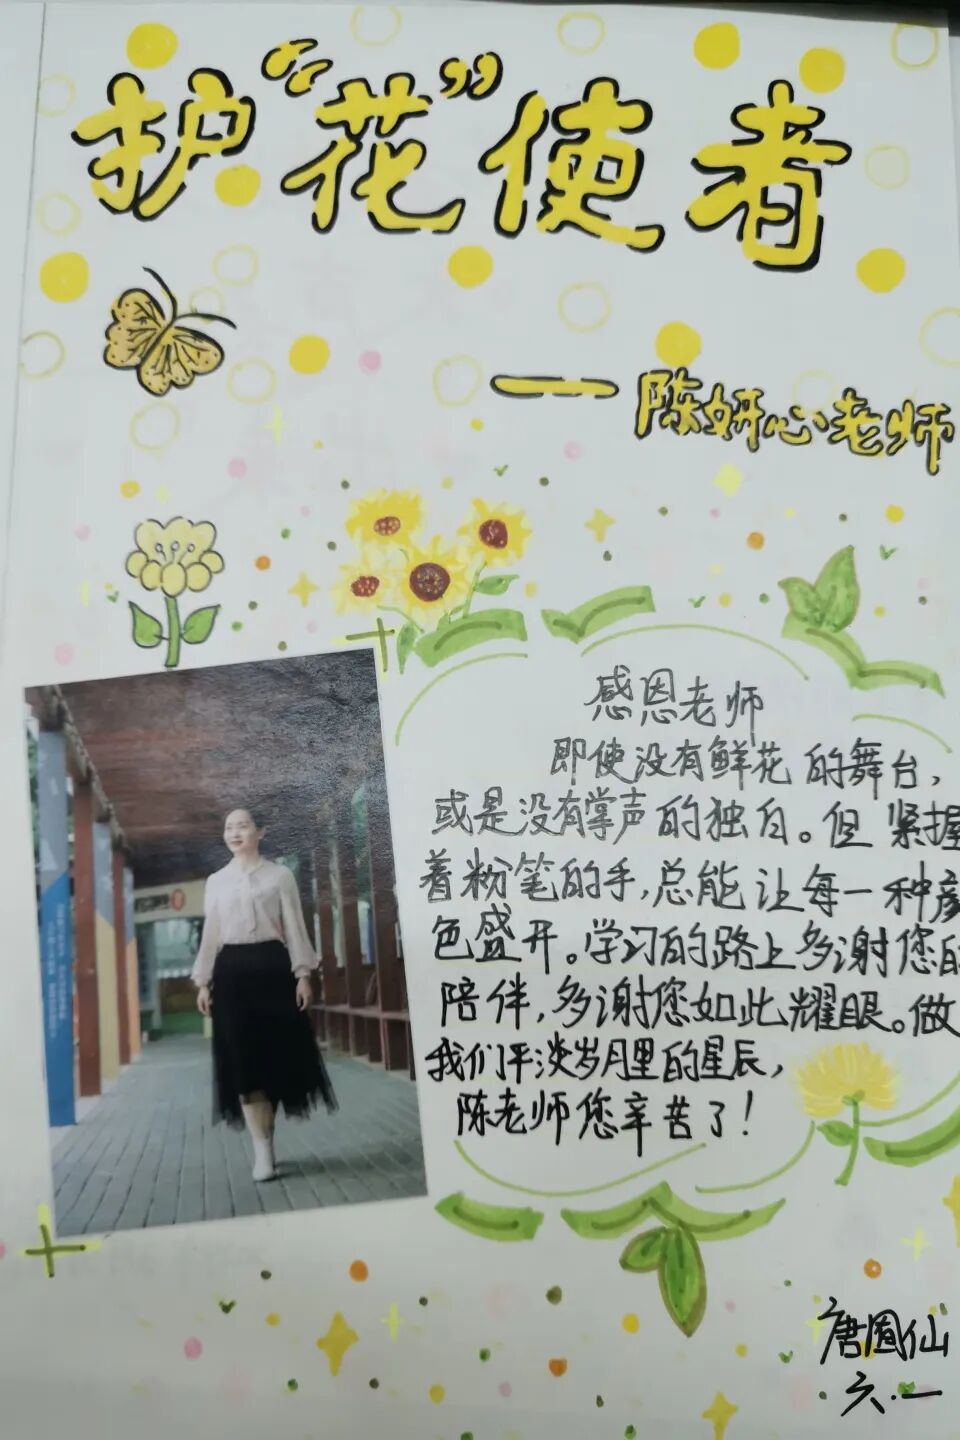 护“花”使者
——陈妍心老师
感恩老师
即使没有鲜花的舞台，
或是没有掌声的独白。但紧握
着粉笔的手，总能让每一种颜
色盛开。学习的路上多谢您的
陪伴，多谢您如此耀眼。做
我们平淡岁月里的星辰，
陈老师您辛苦了！
唐圆仙
六·一